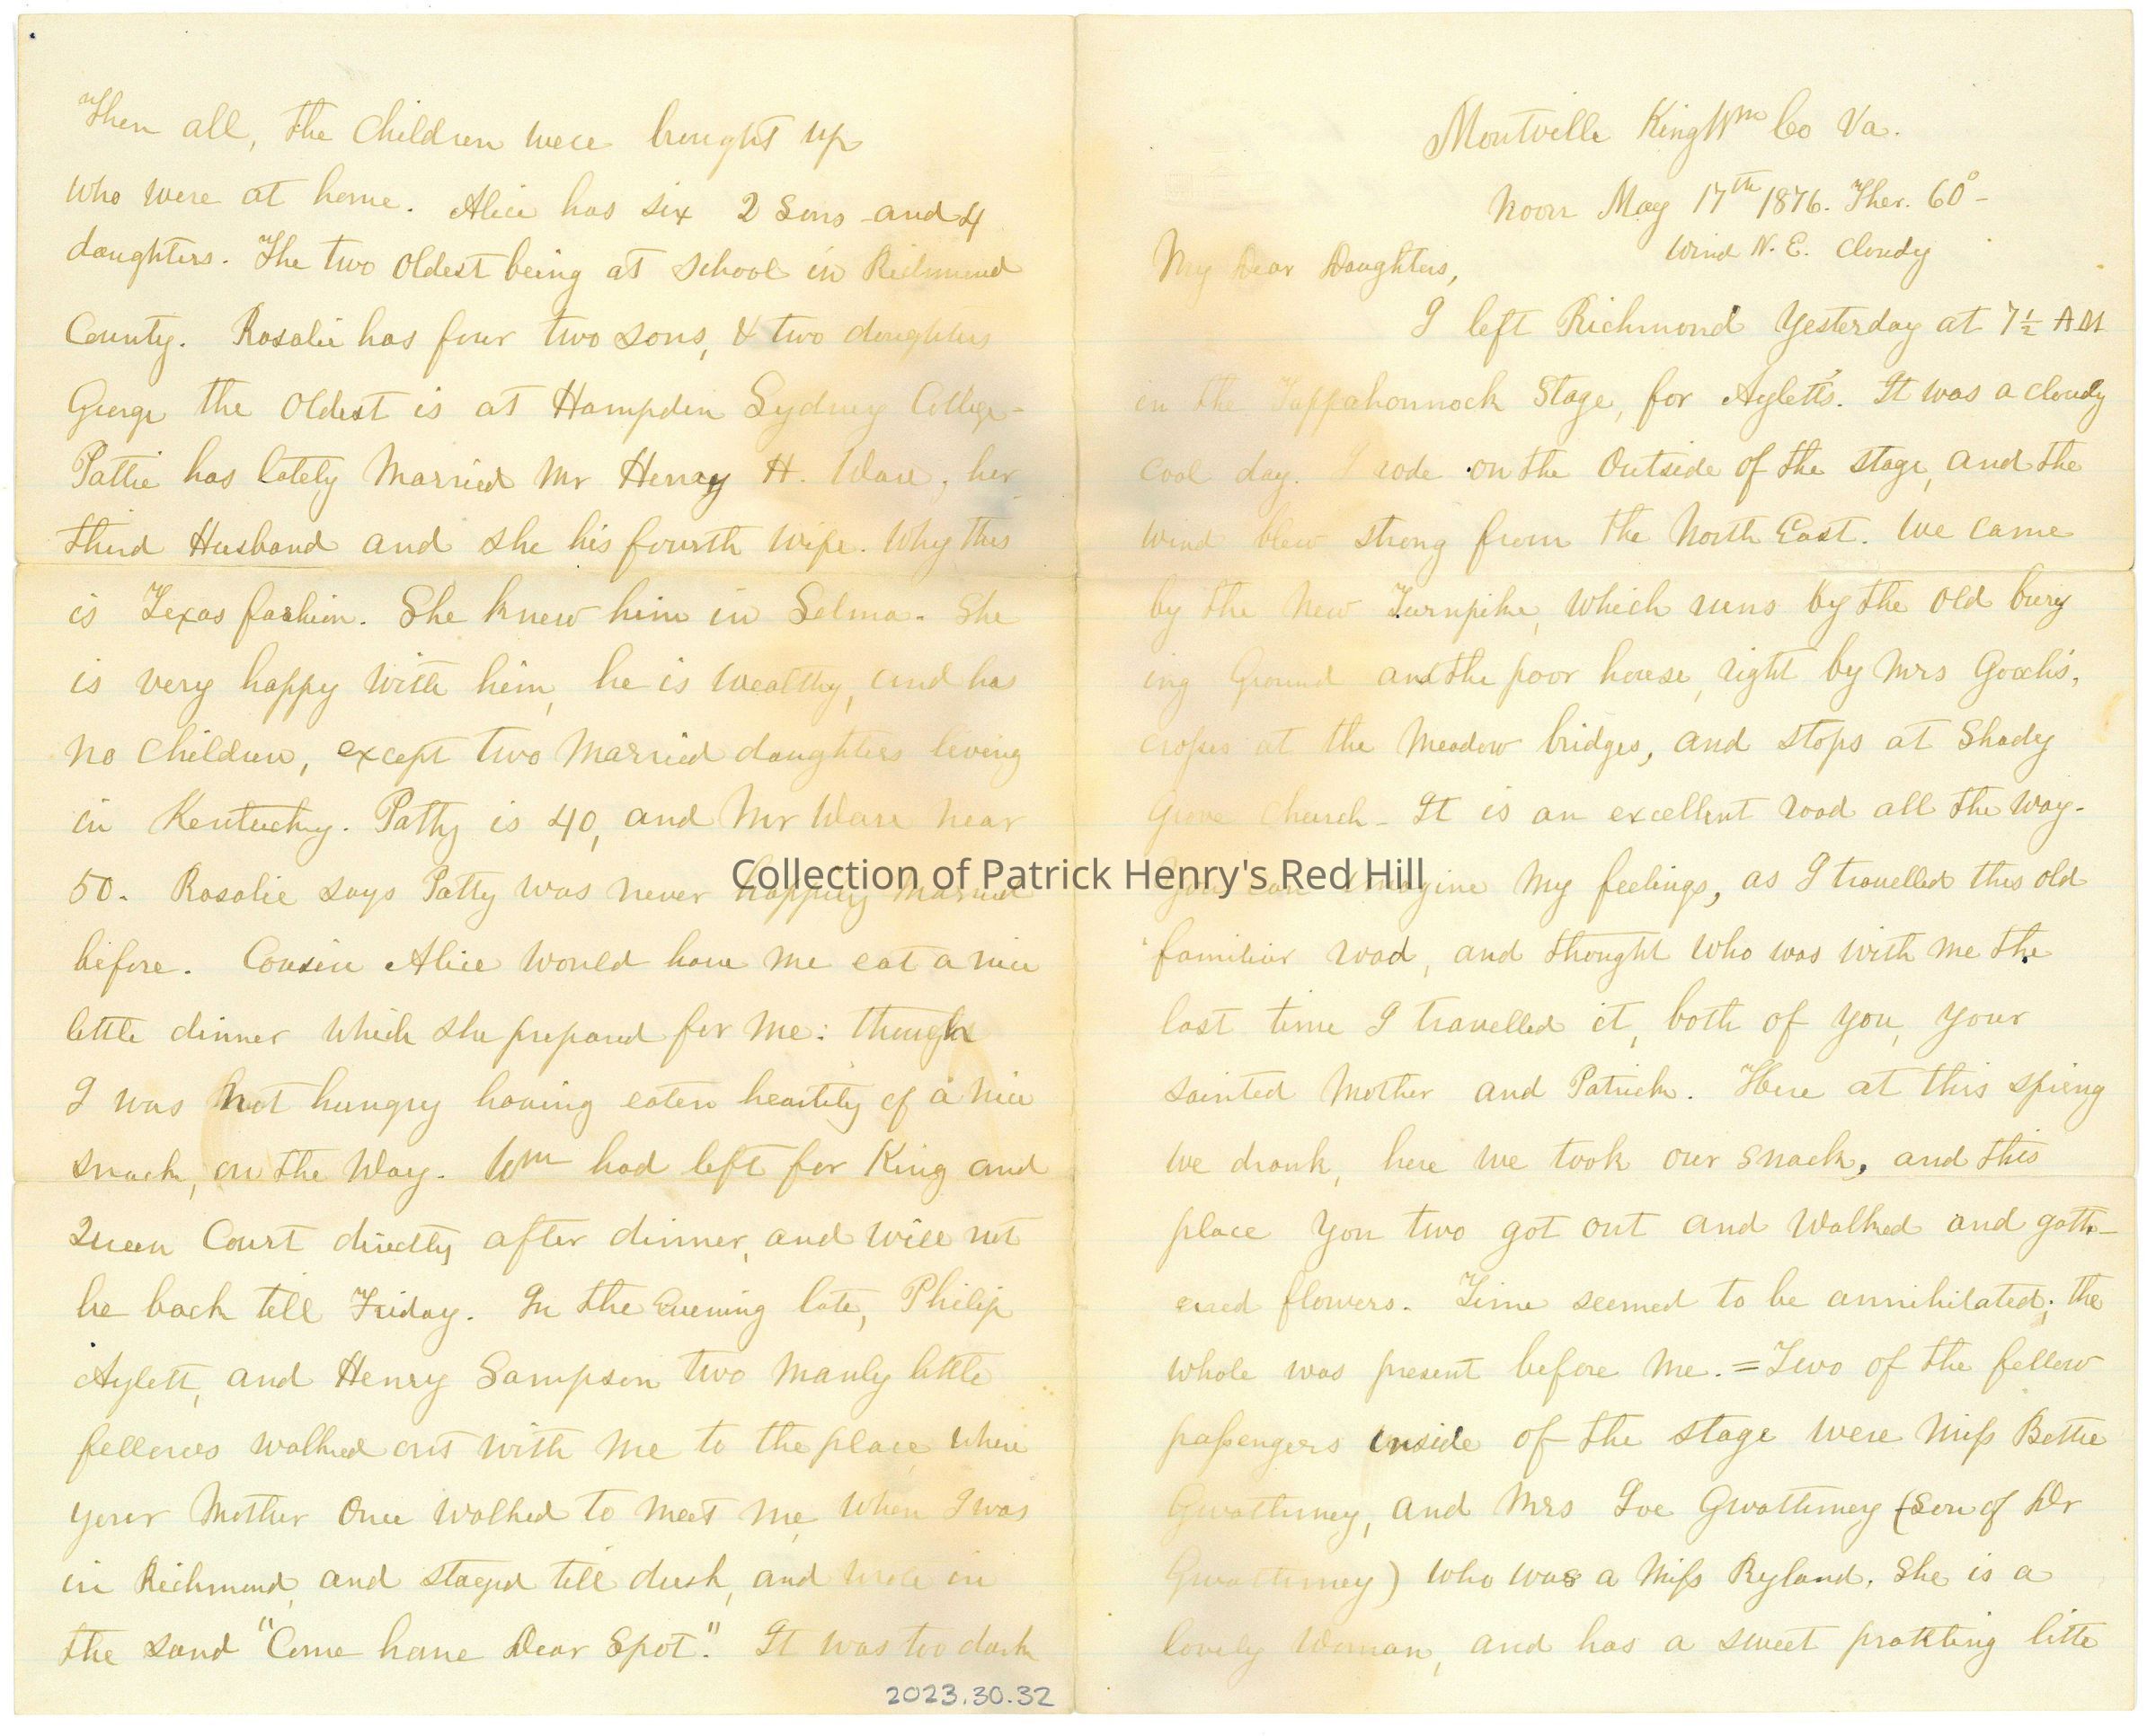 Montville King Wm Co Va.
Noon May 17th 1876. Ther. 60° -
Wind N. E. Cloudy
My Dear Daughters,
I left Richmond Yesterday at 7½ AM
in the Tappahonnock Stage, for Aylett's. It was a cloudy
cool day. I rode on the Outside of the stage, and the
wind blew strong from the North East. We came
by the New Turnpike, which runs by the old bury
ing Ground and the poor house, right by Mrs Gooch's,
crosses at the Meadow bridges, and stops at Shady
Grove Church - It is an excellent road all the way.
You can imagine My feelings, as I travelled this old
familiar road, and thought who was with me the
last time I travelled it, both of you, your
sainted Mother and Patrick. Here at this spring
we drank, here we took our snack, and this
place you two got out and Walked and gath-
ered flowers. Time seemed to be annihilated; the
whole was present before me. = Two of the fellow
passengers inside of the stage were Miss Bettie
Gwathmey, and Mrs Joe Gwathmey (Son of Dr
Gwathmey) who was a Miss Ryland. She is a
lovely Woman, and has a sweet prattling litte
Then all, the Children were brought up
who were at home. Alice has six 2 Sons and 4
daughters. The two oldest being at School in Richmond
County. Rosalie has four two sons, & two daughters
George the oldest is at Hampden Sydney College -
Pattie has lately Married Mr Henry H. Ware, her
third Husband and she his fourth wife. Why this
is Texas fashion. She knew him in Selma. She
is very happy with him, he is wealthy, and has
no Children, except two Married daughters living
in Kentucky. Patty is 40, and Mr Ware near
50. Rosalie says Patty was never happily married
before. Cousin Alice would have me eat a nice
little dinner which she prepared for me: though
I was not hungry having eaten heartily of a nice
snack, on the Way. Wm had left for King and
Queen Court directly after dinner, and will not
be back till Friday. In the Evening late, Philip
Aylett, and Henry Sampson two manly little
fellows walked out with me to the place where
your Mother Once walked to meet me, when I was
in Richmond, and stayed till dusk, and wrote in
the sand "Come home Dear Spot." It was too dark
2023.30.32
Collection of Patrick Henry's Red Hill